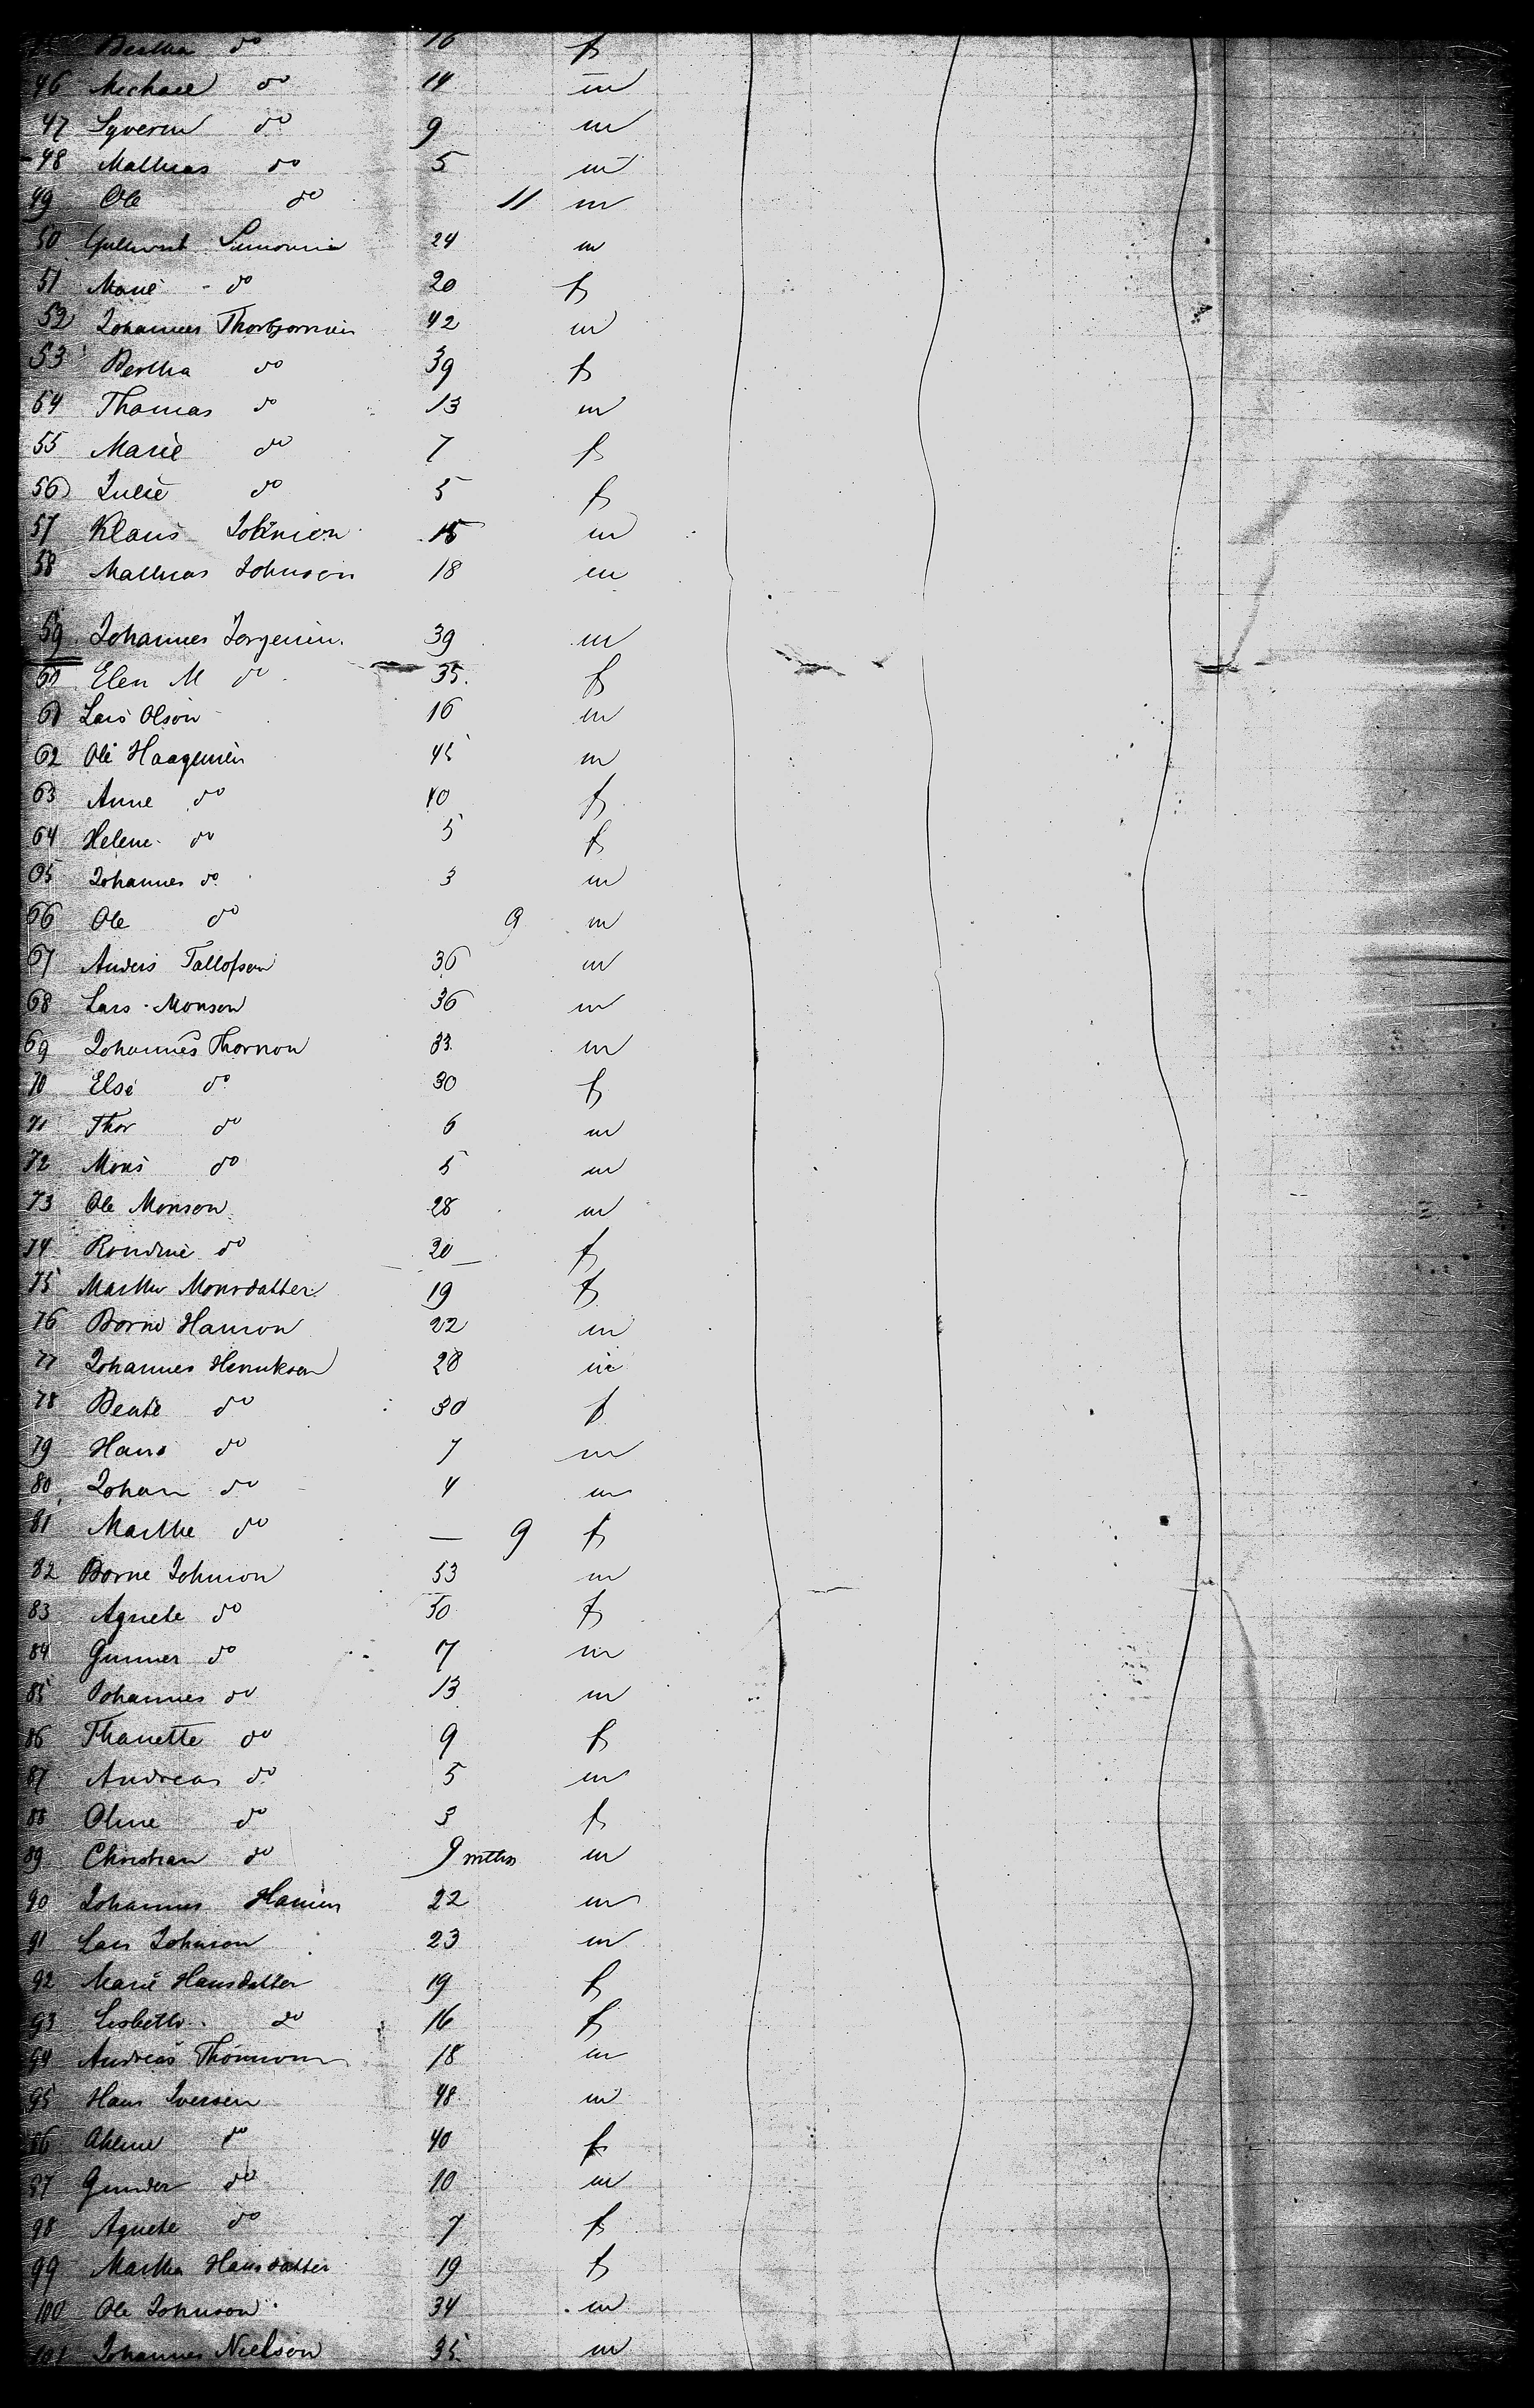 Bertha do 16 f
46 Michael do 14 m
47 Syverin do 9 m
48 Mathias do 5 m
49 Ole do 11 m
50 Simonsen 24 m
51 Marie do 20 f
52 Johannes Thorbjornsen 42 m
53 Bertha do 39 f
54 Thomas do 13 m
55 Marie do 7 f
56 Julie do 5 f
57 Klaus Johnson 15 m
58 Mathias Johnson 18 m
59 Johannes Jorgensen 39 m
60 Elen M do 35 f
61 Lars Olson 16 m
62 Ole Haagensen 45 m
63 Anne do 40 f
64 Helene do 5 f
65 Johannes do 3 m
66 Ole do 9 m
67 Anders Tallofsen 36 m
68 Lars Monson 36 m
69 Johannes Thorson 33 m
70 Else do 30 f
71 Thor do 6 m
72 Mons do 5 m
73 Ole Monson 28 m
74 do 20 f
75 Marthe Monsdatter 19 f
76 Borne Hanson 22 m
77 Johannes Henrikson 28 m
78 Beate do 30 f
79 Hans do 7 m
80 Johan do 4 m
81 Marthe do — 9 f
82 Borne Johnson 53 m
83 Agnete do 50 f
84 Gunner do 17 m
85 Johannes do 13 m
86 Thanette do 9 f
87 Andreas do 5 m
88 Oline do 3 f
89 Christian do 9 mths m
90 Johannes Hansen 22 m
91 Lars Johnson 23 m
92 Marie Hansdatter 19 f
93 Lisbeth do 16 f
94 Andreas 18 m
95 Hans Iversen 48 m
96 do 40 f
97 Gunder do 10 m
98 Agnete do 7 f
99 Martha Hansdatter 19 f
100 Ole Johnson 34 m
101 Johannes Nielson 35 m